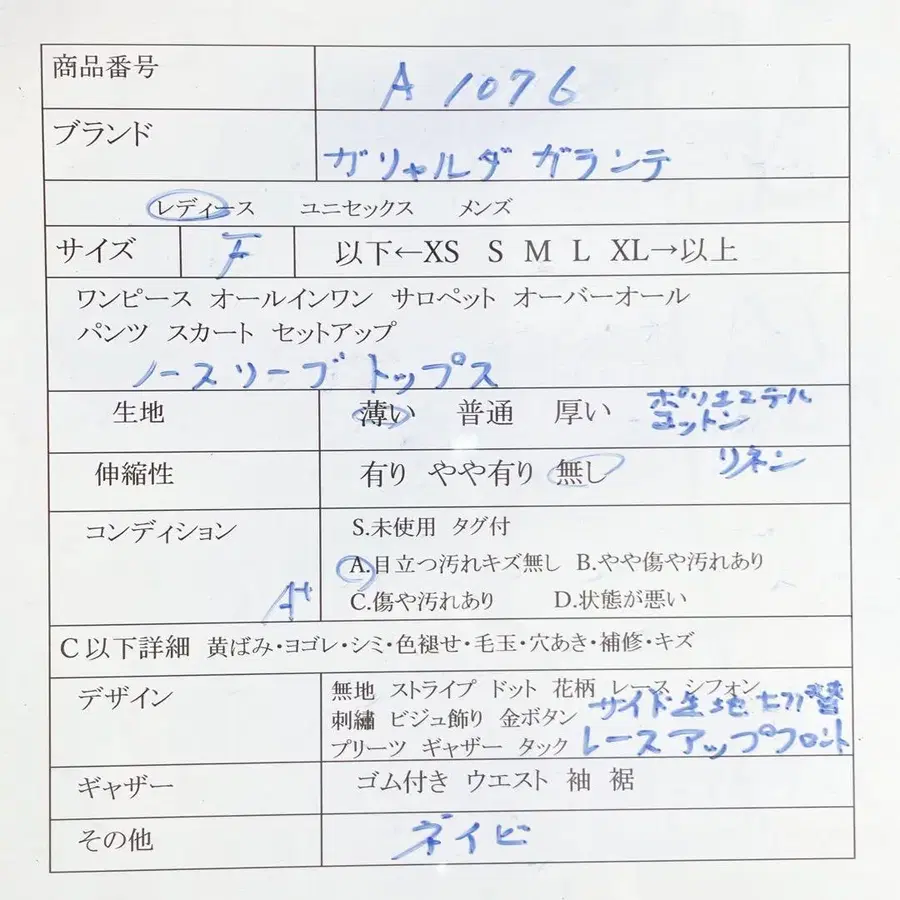 商品番号 A 1076
ブランド ガリャルダ ガランテ
レディース ユニセックス メンズ
サイズ F 以下←XS S M L XL→以上
ワンピース オールインワン サロペット オーバーオール
パンツ スカート セットアップ
ノースリーブ トップス
生地 薄い 普通 厚い ポリエステル
コットン
伸縮性 有り やや有り 無し リネン
コンディション S.未使用 タグ付
A.目立つ汚れキズ無し B.やや傷や汚れあり
A+ C.傷や汚れあり D.状態が悪い
C以下詳細 黄ばみ・ヨゴレ・シミ・色褪せ・毛玉・穴あき・補修・キズ
デザイン 無地 ストライプ ドット 花柄 レース シフォン
刺繍 ビジュ飾り 金ボタン サイド生地切り替
プリーツ ギャザー タック レースアップフロント
ギャザー ゴム付き ウエスト 袖 裾
その他 ネイビ